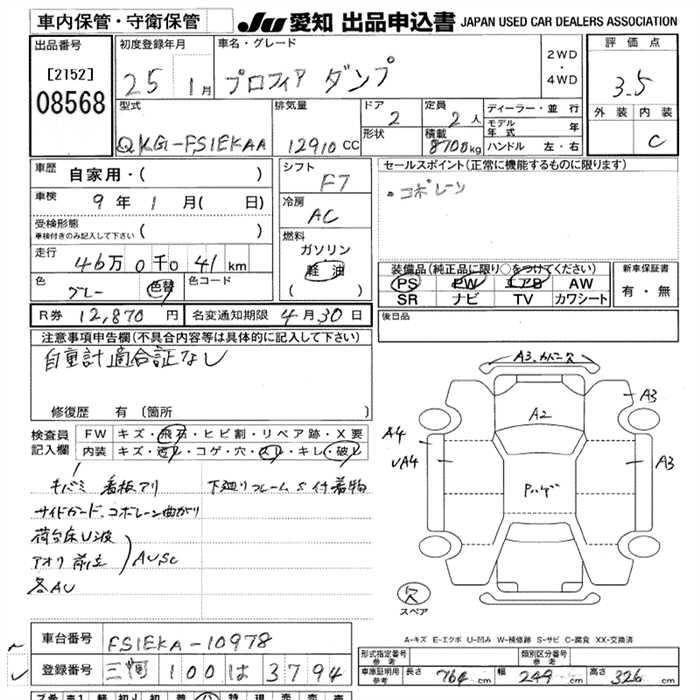 車内保管・守衛保管 JU 愛知 出品申込書 JAPAN USED CAR DEALERS ASSOCIATION
出品番号 [2152] 08568
初度登録年月 25 1月
車名・グレード プロフィア ダンプ
2WD・4WD
評価点 3.5
外装 内装 C
型式 QKG-FS1EKAA
排気量 12910 CC
ドア 2
形状
定員 2人
積載 8700kg
ディーラー・並行
モデル年式 年
ハンドル 左・右
車歴 自家用・( )
車検 9年 1月( 日)
受検形態 車検付きのみ記入して下さい ( )
走行 46万0千041km
色 グレー 色替 色コード
シフト F7
冷房 AC
燃料 ガソリン 軽油 ( )
セールスポイント(正常に機能するものに限ります)
。コボレーン
装備品(純正品に限り○をつけてください)
PS PW エアB AW
SR ナビ TV カワシート
新車保証書 有・無
R券 12,870円 名変通知期限 4月30日
後日品
注意事項申告欄(不具合内容等は具体的に記入して下さい)
自重計適合証なし
修復歴 有 [箇所 ]
検査員記入欄
FW キズ・飛石・ヒビ割・リペア跡・X要
内装 キズ・汚レ・コゲ・穴・スレ・キレ・破レ
キバミ 看板アリ 下廻りフレームS付着物
サイドガード、コボレーン曲がり
荷台床U波
アオリ 前立 AUSC
各AU
A3
A3
A2
A4
A3
スペア
A-キズ E-エクボ U-凹み W-補修跡 S-サビ C-腐食 XX-交換済
車台番号 FS1EKA-10978
登録番号 100 は 3794
形式指定番号 参考
類別区分番号 参考
車庫証明用 参考 長さ 764cm 幅 249cm 高さ 326cm